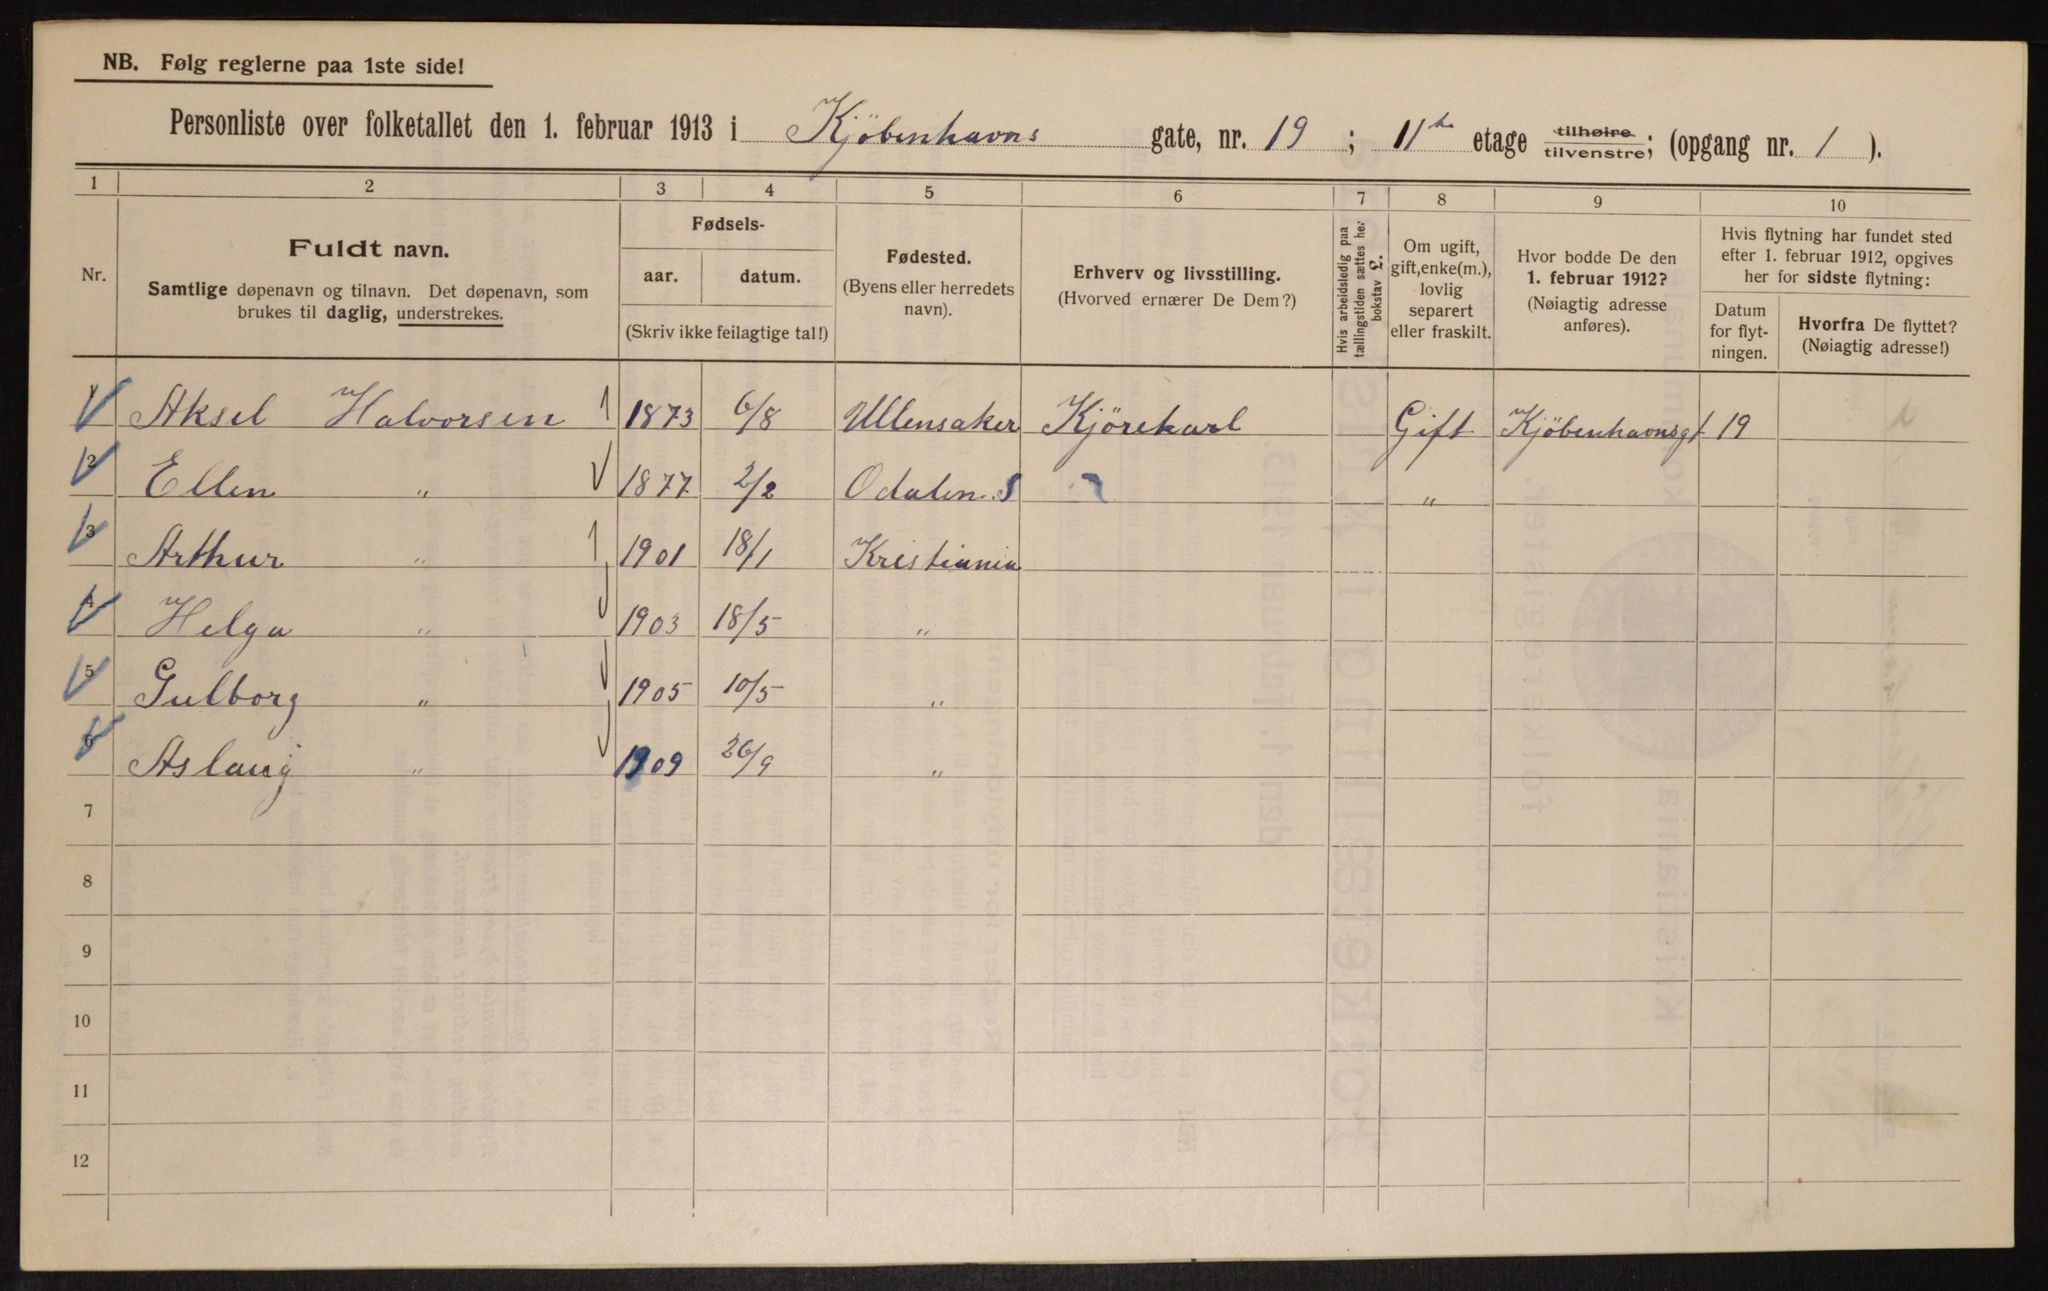 NB. Følg reglerne paa 1ste side!
Personliste over folketallet den 1. februar 1913 i Kjöbenhavns gate, nr. 19 ; 11te etage tilhøire/tilvenstre; (opgang nr. 1 ).
1 2 3 4 5 6 7 8 9 10
Nr.
Fuldt navn.
Samtlige døpenavn og tilnavn. Det døpenavn, som
brukes til daglig, understrekes.
Fødsels-
aar. datum.
(Skriv ikke feilagtige tal!)
Fødested.
(Byens eller herredets
navn).
Erhverv og livsstilling.
(Hvorved ernærer De Dem?)
Hvis arbeidsledig paa
tællingstiden sættes her
bokstav L.
Om ugift,
gift, enke(m.),
lovlig
separert
eller fraskilt.
Hvor bodde De den
1. februar 1912?
(Nøiagtig adresse
anføres).
Hvis flytning har fundet sted
efter 1. februar 1912, opgives
her for sidste flytning:
Datum
for flyt-
ningen.
Hvorfra De flyttet?
(Nøiagtig adresse!)
1 Aksel Halvorsen 1 1873 6/8 Ullensaker Kjörekarl Gift Kjöbenhavnsgt 19
2 Ellen " 1877 2/2 Odalen. S "
3 Arthur " 1 1901 18/1 Kristiania
4 Helga " 1903 18/5 "
5 Gulborg " 1905 10/5 "
6 Aslaug " 1909 26/9 "
7
8
9
10
11
12